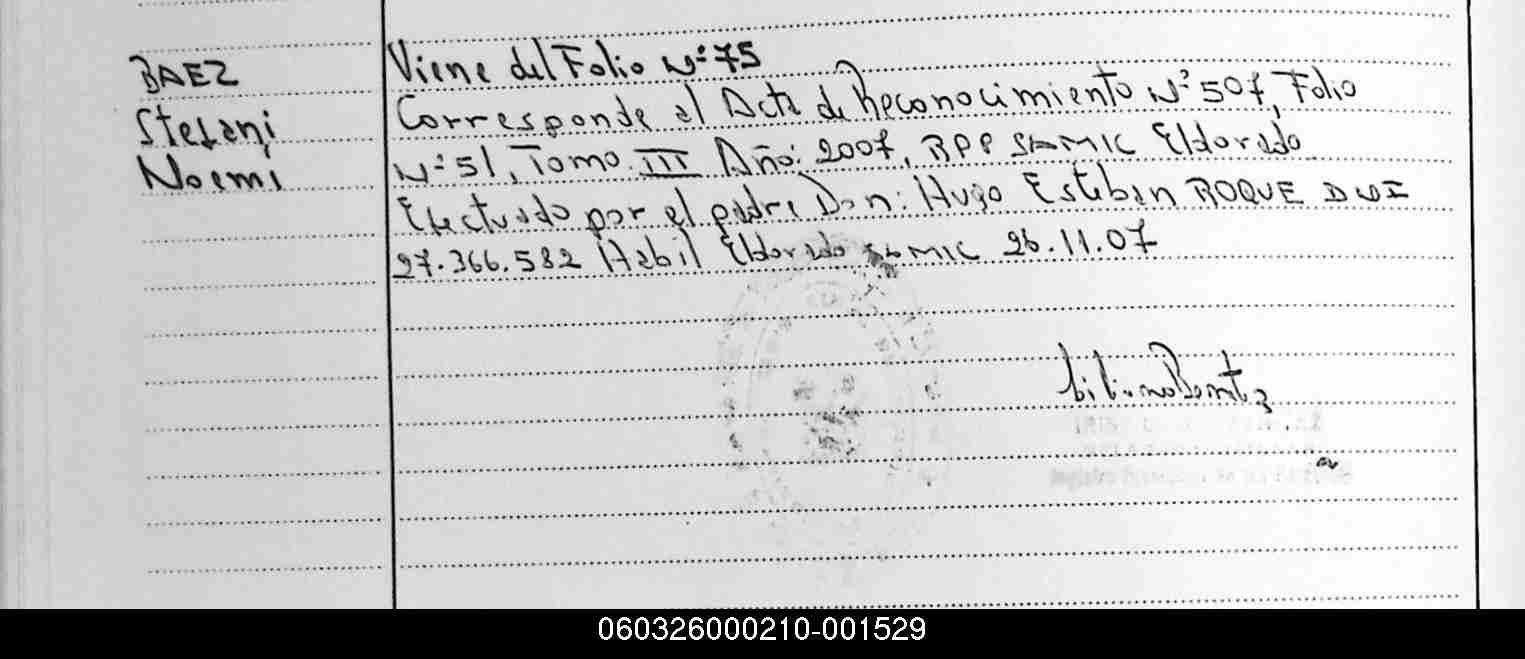 BAEZ
Stefani
Noemi
Viene del Folio Nº 75
Corresponde al Acta de Reconocimiento Nº 507, Folio
Nº 51, Tomo: III Año: 2007, RPP SAMIC Eldorado
Efectuado por el padre Don: Hugo Esteban ROQUE DNI
27.366.582 Habil Eldorado SAMIC 26.11.07
060326000210-001529